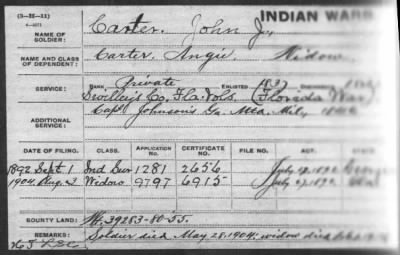 (3-25-11)
INDIAN WARS
NAME OF SOLDIER: Carter, John J.
NAME AND CLASS OF DEPENDENT: Carter, Angie Widow
SERVICE: RANK, Private ENLISTED, 1837
Co. Fla. Vols. (Florida War)
ADDITIONAL SERVICE: Capt Johnson's Ga. Mtd. Mil.
DATE OF FILING. CLASS. APPLICATION NO. CERTIFICATE NO. FILE NO. ACT.
1892 Sept. 1 Ind Sur 1281 2656 July 27, 1892
1904 Aug. 3 Widow 9797 6915 July 27, 1892
BOUNTY LAND: W. 39283-80-55.
REMARKS: Soldier died May 28, 1904; widow died